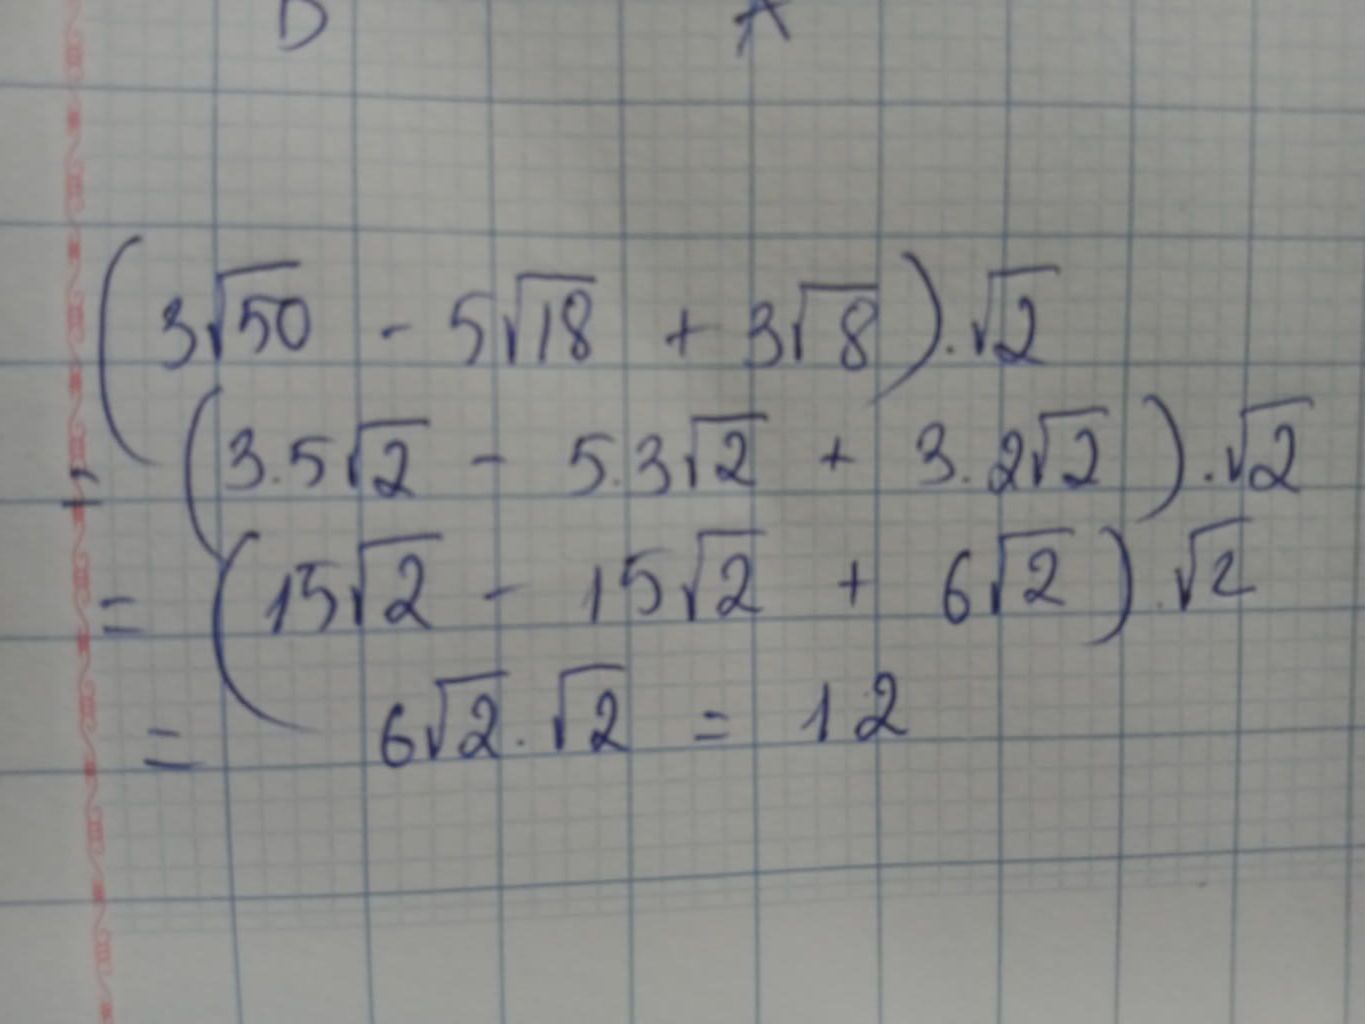 D A
(3√50 - 5√18 + 3√8).√2
= (3.5√2 - 5.3√2 + 3.2√2).√2
= (15√2 - 15√2 + 6√2).√2
= 6√2.√2 = 12